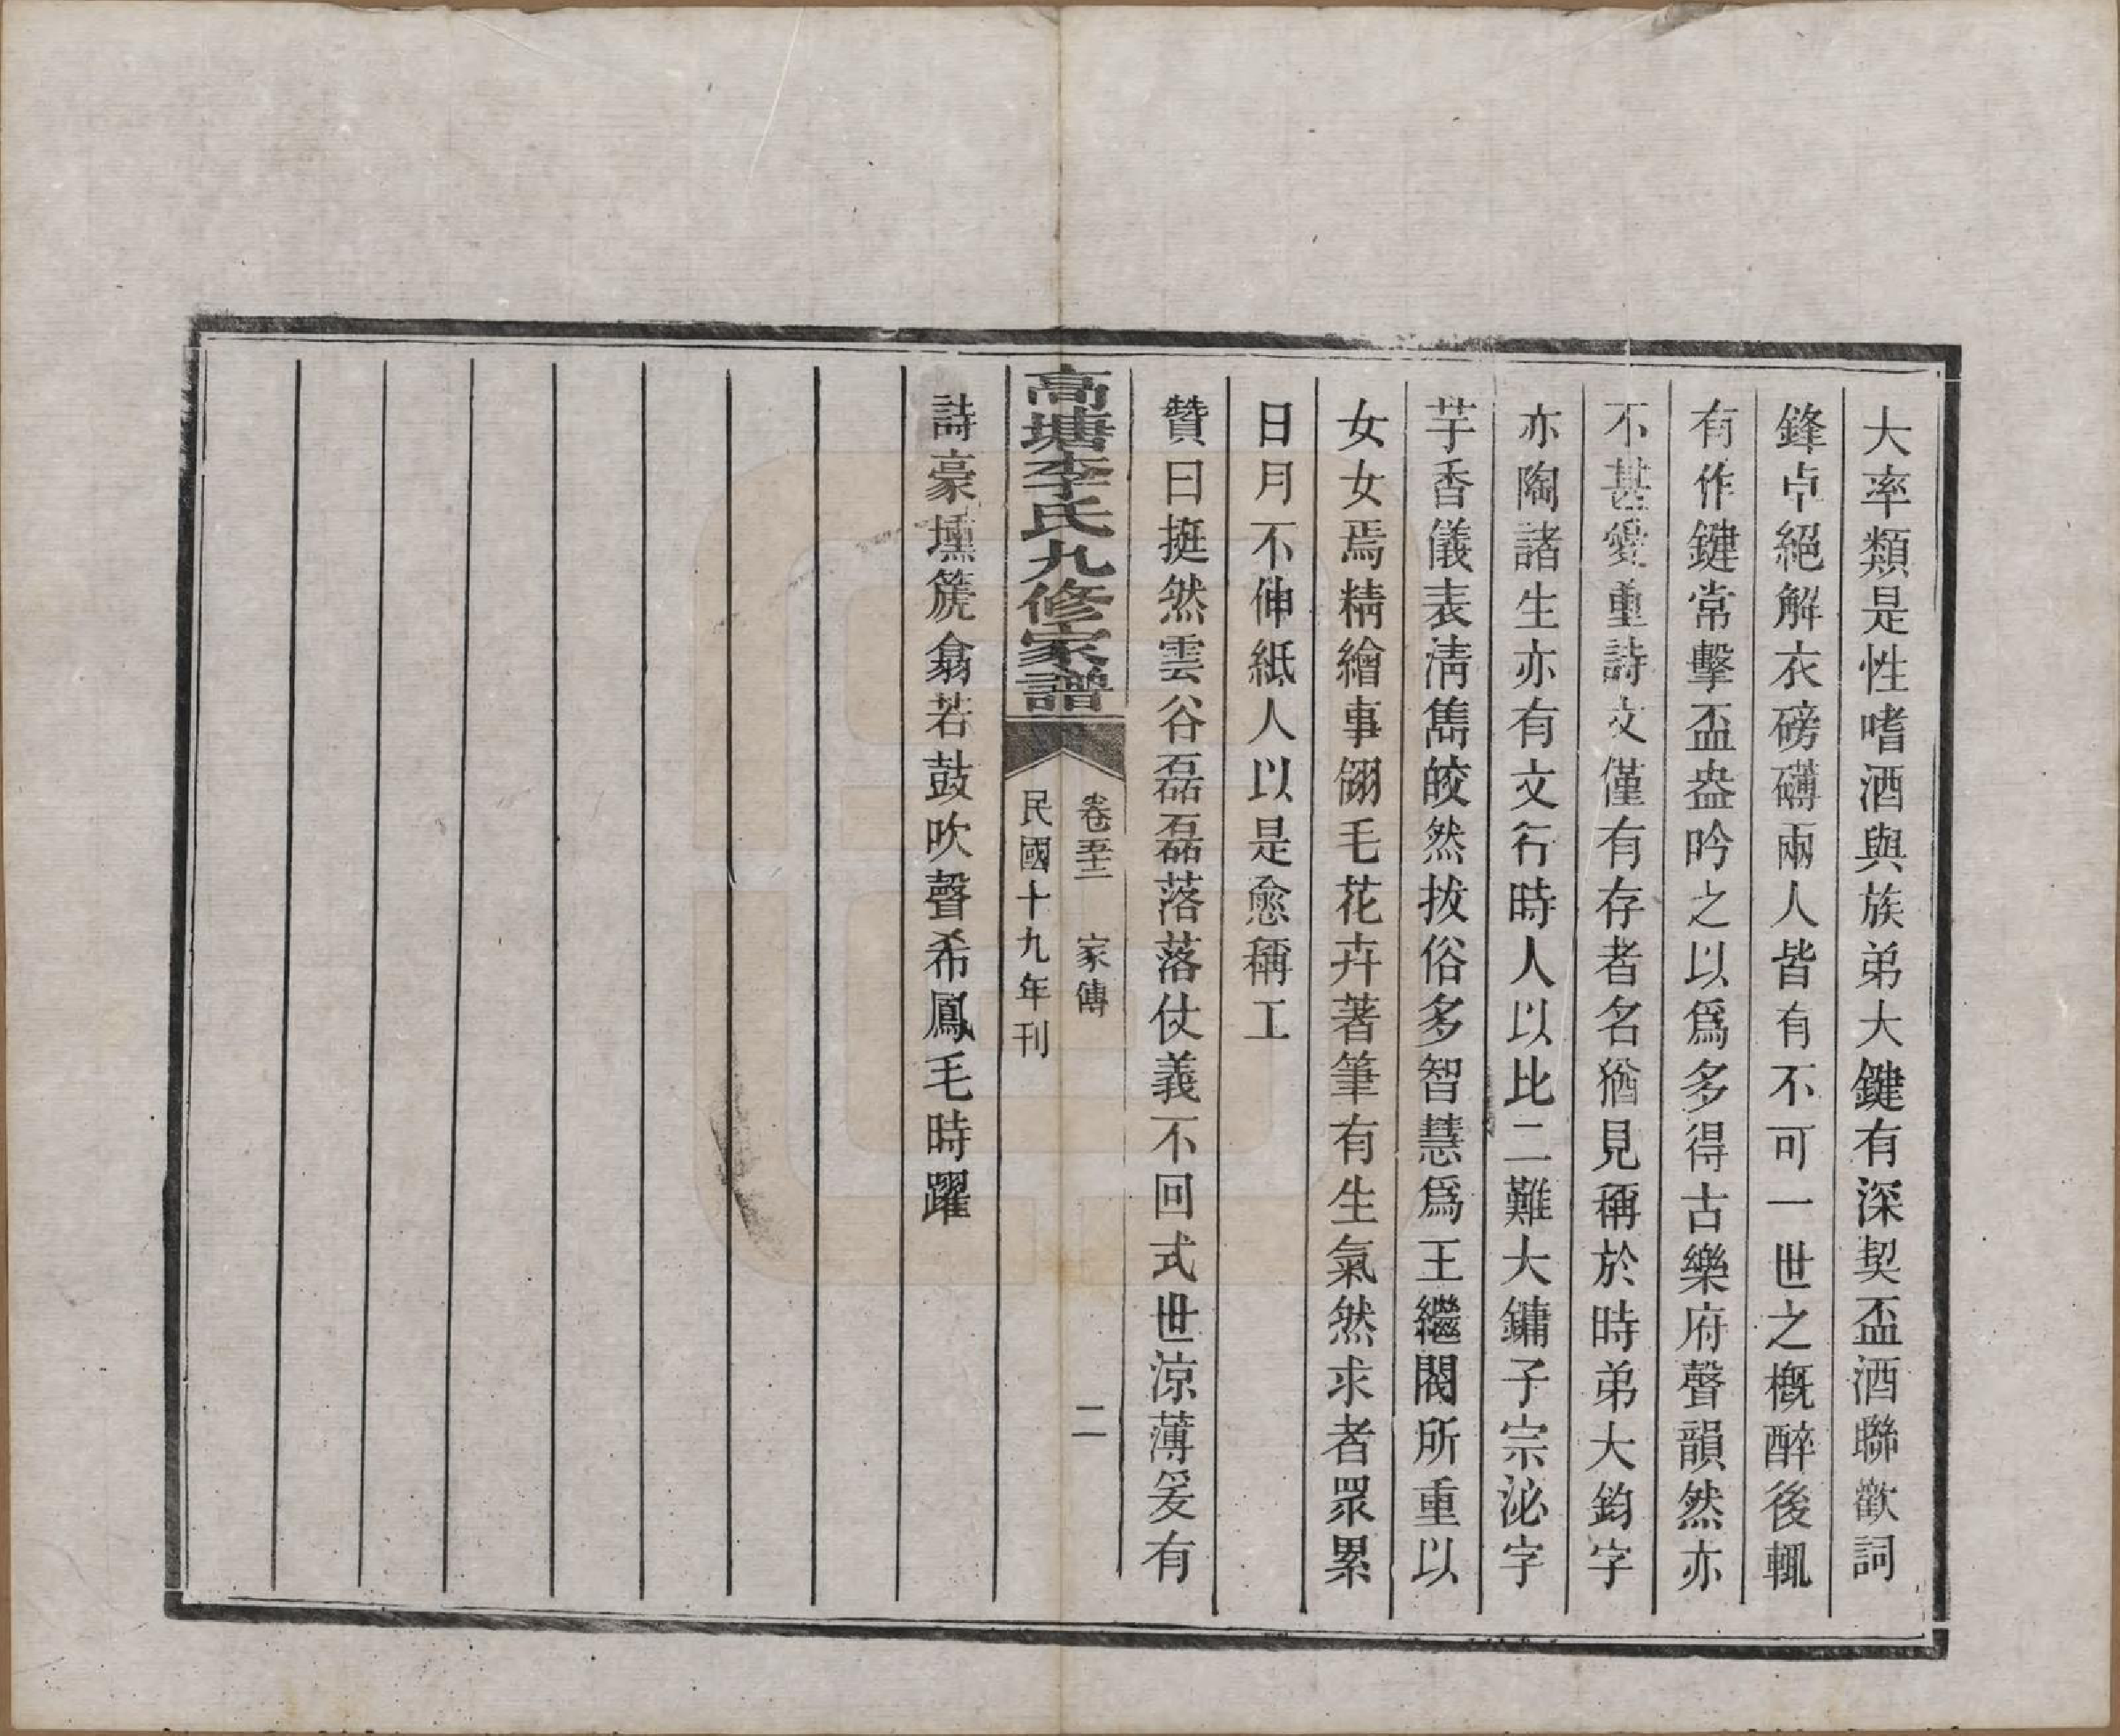 大率類是性嗜酒與族弟大鍵有深契盃酒聯歡詞
鋒卓絕解衣磅礴兩人皆有不可一世之概醉後輒
有作鍵常擊盃盎吟之以爲多得古樂府聲韻然亦
不甚愛重詩文僅有存者名猶見稱於時弟大鈞字
亦陶諸生亦有文行時人以比二難大鏞子宗泌字
芋香儀表清雋皎然拔俗多智慧爲王繼閣所重以
女女焉精繪事翎毛花卉著筆有生氣然求者眾累
日月不伸紙人以是愈稱工
贊曰挺然雲谷磊磊落落仗義不回式世涼薄爰有
高塘李氏九修家譜
卷五二　家傳
二
民國十九年刊
詩豪壎篪翕若鼓吹聲希鳳毛時躍